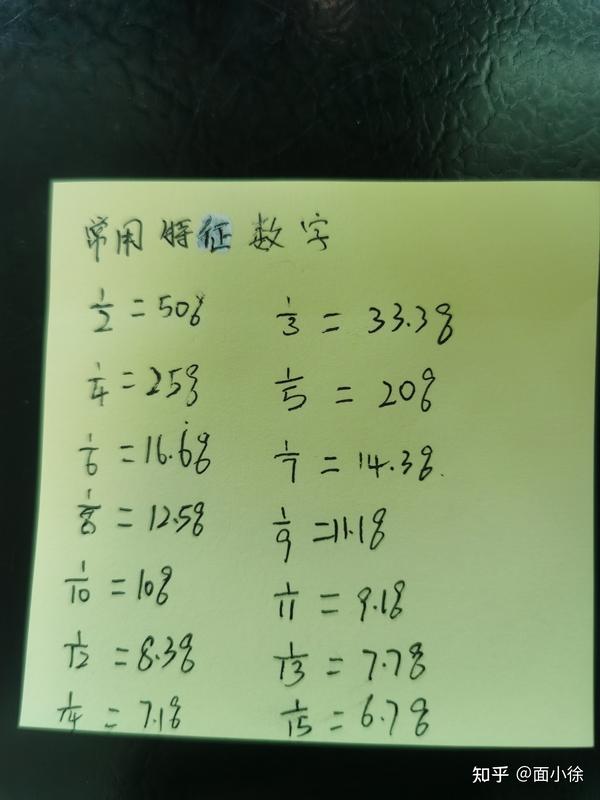 常用特征数字
1/2 = 50% 1/3 = 33.3%
1/4 = 25% 1/5 = 20%
1/6 = 16.6% 1/7 = 14.3%
1/8 = 12.5% 1/9 = 11.1%
1/10 = 10% 1/11 = 9.1%
1/12 = 8.3% 1/13 = 7.7%
1/14 = 7.1% 1/15 = 6.7%
知乎 @面小徐